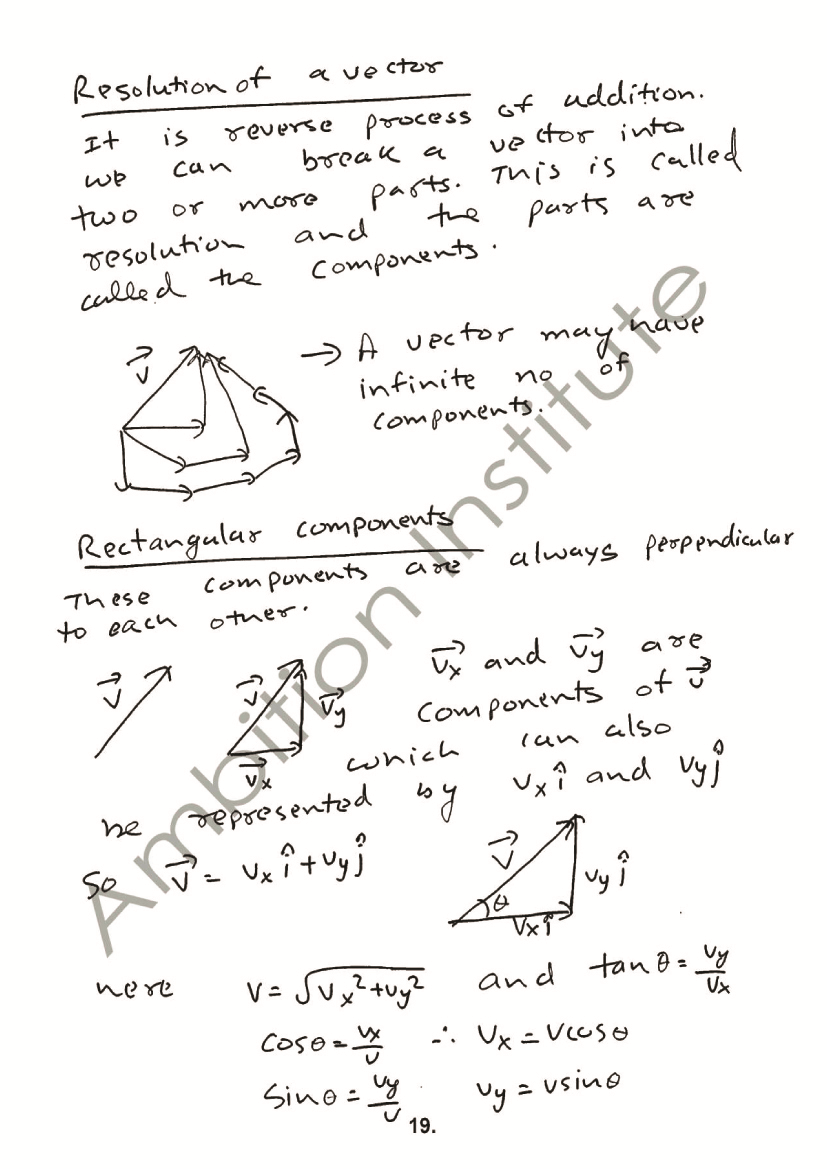 Resolution of a vector
It is reverse process of addition.
we can break a vector into
two or more parts. This is called
resolution and the parts are
called the components.
V⃗
→ A vector may have
infinite no of
components.
Rectangular components
These components are always perpendicular
to each other.
V⃗
V⃗
V⃗y
V⃗x
V⃗x and V⃗y are
components of V⃗
which can also
be represented by Vx î and Vy ĵ
So V⃗ = Vx î + Vy ĵ
V⃗
Vy ĵ
θ
Vx î
here V = √Vx² + Vy² and tan θ = Vy/Vx
Cos θ = Vx/V ∴ Vx = V cos θ
Sin θ = Vy/V Vy = V sin θ
19.
Ambition Institute